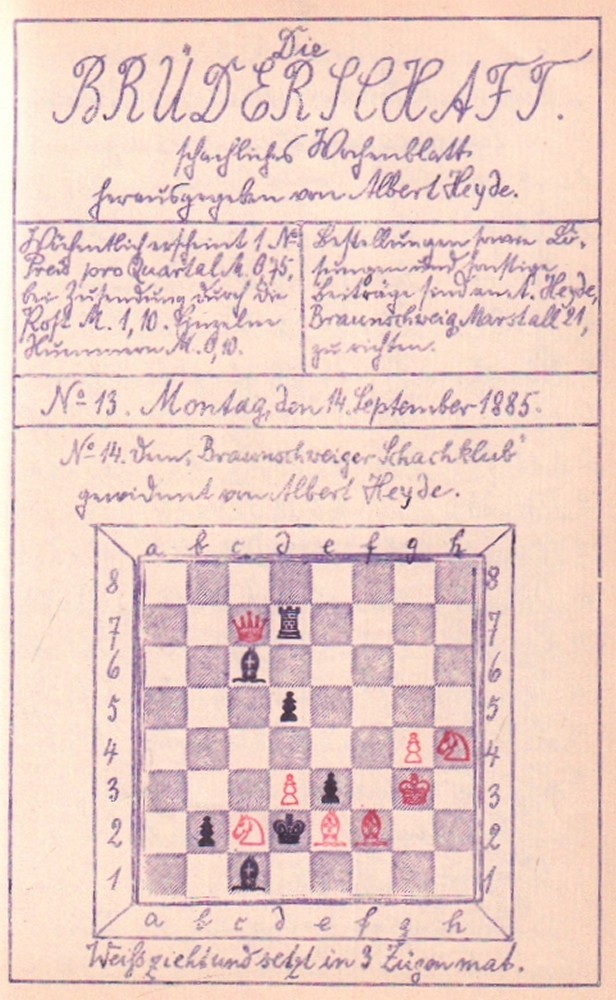 Die
BRÜDERSCHAFT.
schachliches Wochenblatt
herausgegeben von Albert Heyde.
Wöchentlich erscheint 1 No.
Preis pro Quartal M. 0,75,
bei Zusendung durch die
Post M. 1,10. Einzelne
Nummern M. 0,10.
Bestellungen sowie Lö-
sungen und sonstige
Beiträge sind an A. Heyde,
Braunschweig, Marstall 21,
zu richten.
No 13. Montag, den 14. September 1885.
No 14. Dem „Braunschweiger Schachklub"
gewidmet von Albert Heyde.
a b c d e f g h
8 8
7 7
6 6
5 5
4 4
3 3
2 2
1 1
a b c d e f g h
Weiß zieht und setzt in 3 Zügen mat.